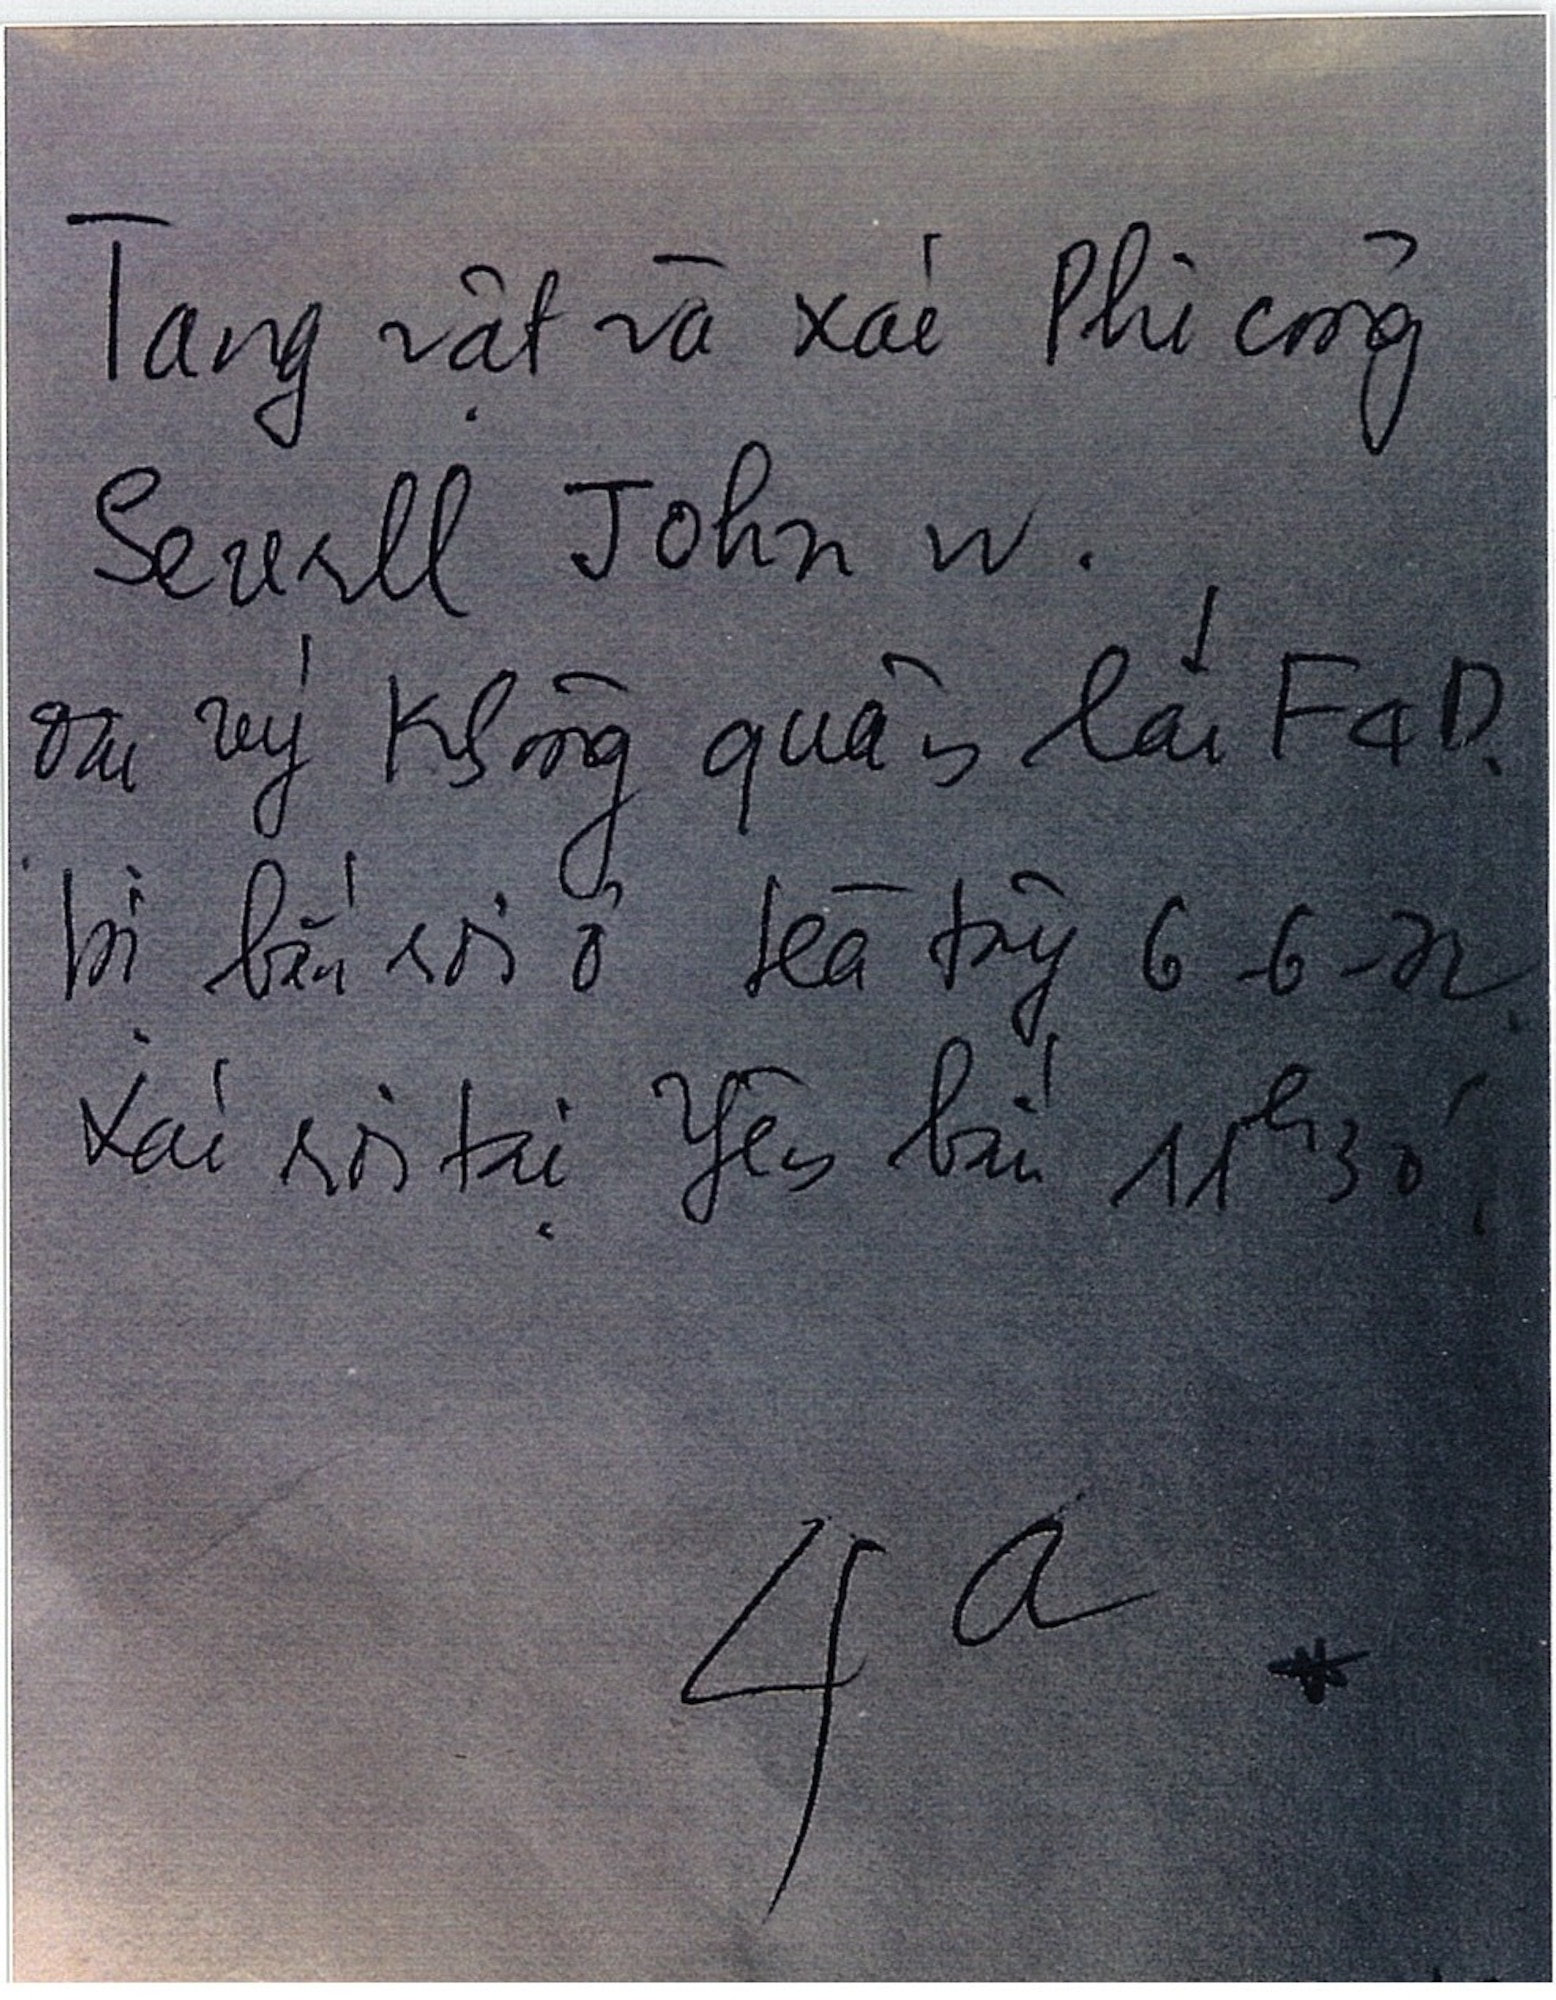 Tang vật và xác Phi công
Sewell John W.
Đại uý Không quân lái F4D.
bị bắn rơi ở 6-6-72
Xác rơi tại Yên bái 11h30'
4a